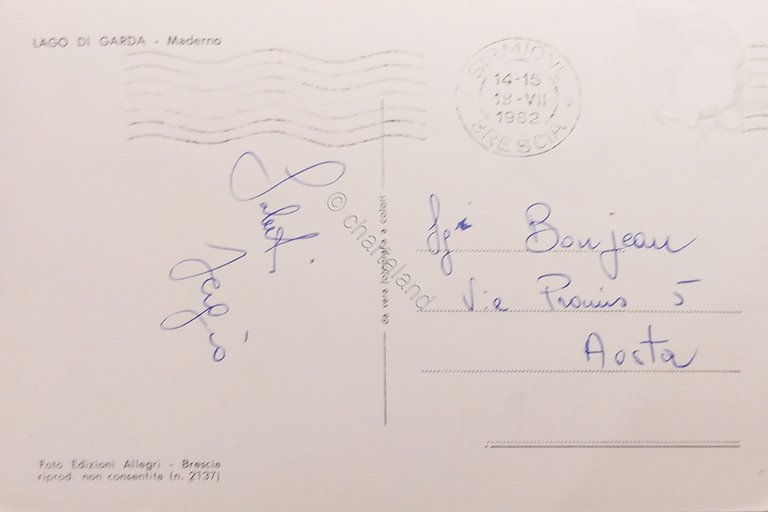 LAGO DI GARDA - Maderno
SIRMIONE
14-15
19-VII
1962
BRESCIA
Saluti
Sergio
© chartaland
da vera fotografia a colori
Bonjean
Via Promis 5
Aosta
Foto Edizioni Allegri - Brescia
riprod. non consentita (n. 2137)